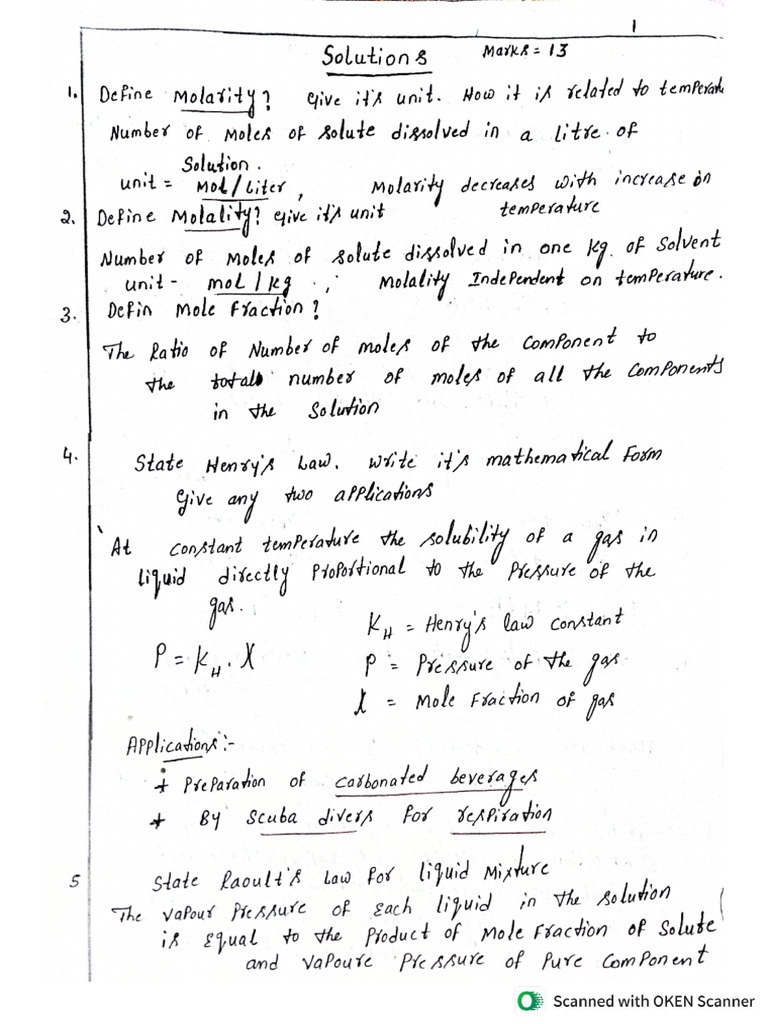 1
Solutions Marks = 13
1. Define Molarity? Give it's unit. How it is related to temperate
Number of Moles of solute dissolved in a litre of
Solution.
unit = Mol/Liter, Molarity decreases with increase in
temperature
2. Define Molality? Give it's unit
Number of Moles of solute dissolved in one kg. of Solvent
unit - mol/kg ., Molality Independent on temperature.
3. Defin Mole Fraction?
The Ratio of Number of moles of the component to
the total number of moles of all the components
in the Solution
4. State Henry's Law. Write it's mathematical Form
Give any two applications
At constant temperature the solubility of a gas in
liquid directly proportional to the Pressure of the
gas.
K_H = Henry's law constant
P = K_H . X
P = Pressure of the gas
X = Mole Fraction of gas
Applications:-
+ Preparation of carbonated beverages
+ By Scuba divers for respiration
5 State Raoult's Law for liquid Mixture
The vapour Pressure of Each liquid in the solution
is Equal to the Product of Mole Fraction of Solute
and vapoure Pressure of Pure Component
Scanned with OKEN Scanner